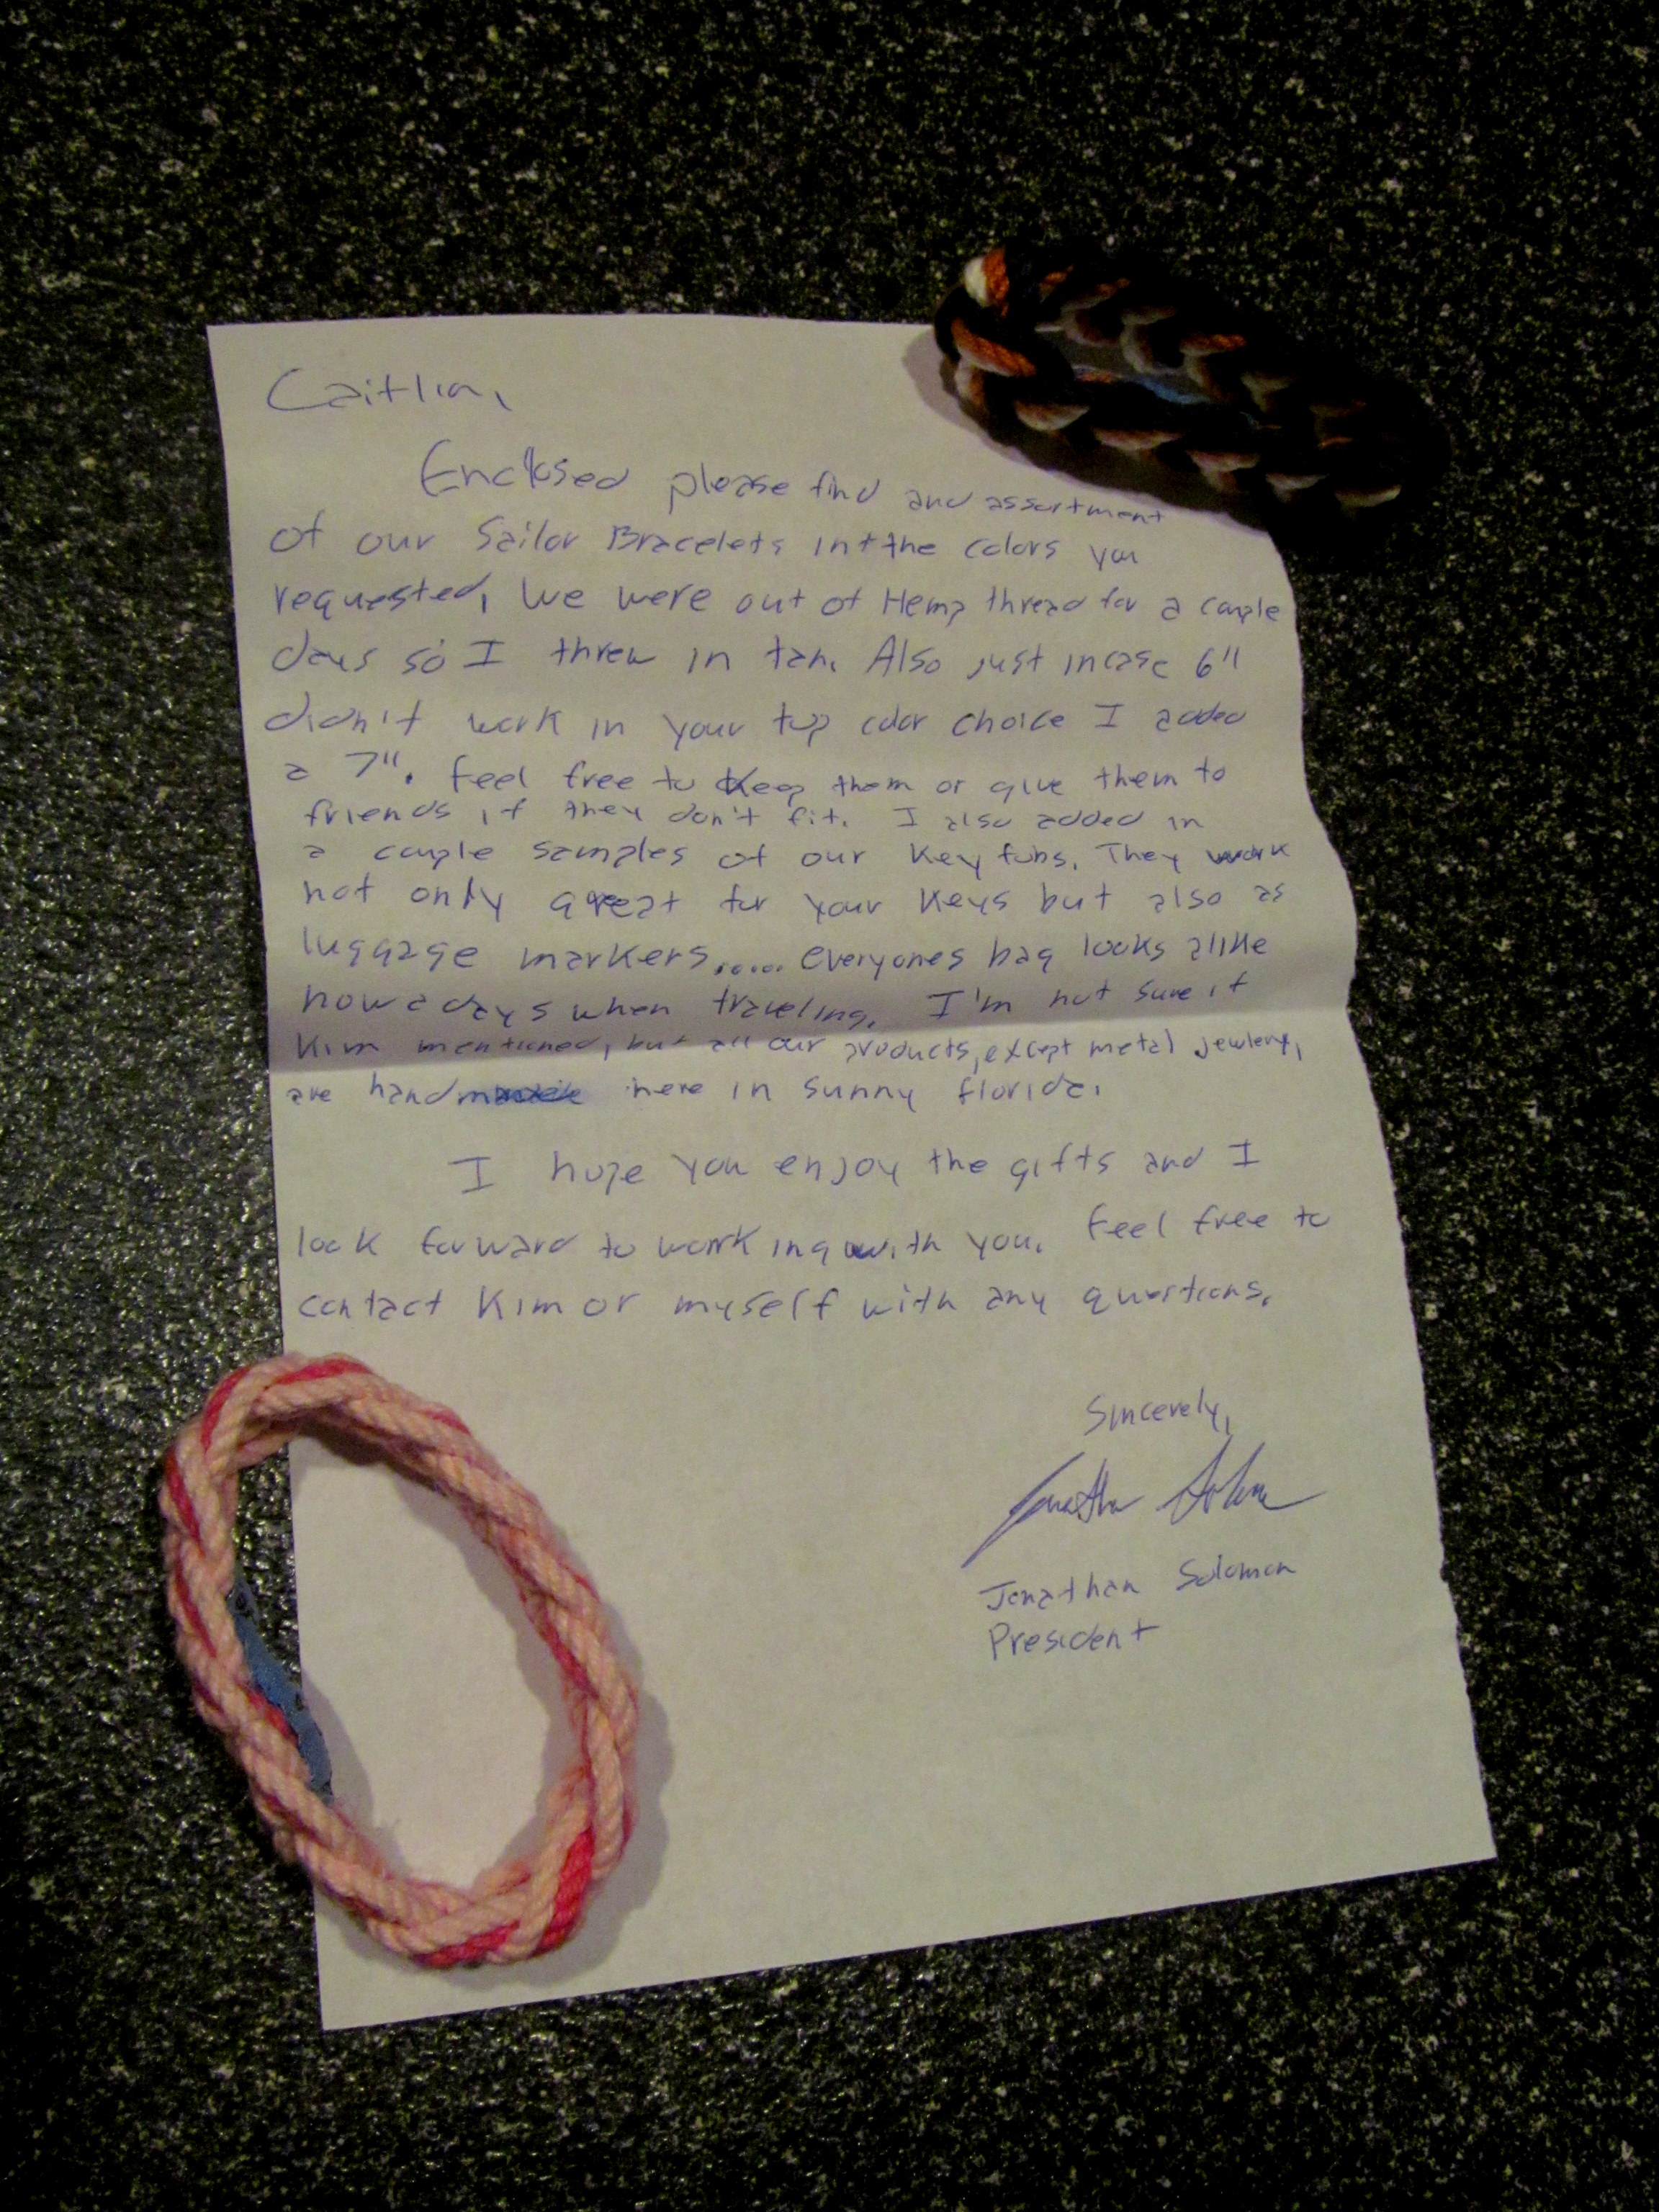 Caitlin,
Enclosed please find and assortment
of our Sailor Bracelets in the colors you
requested, We were out of Hemp thread for a couple
days so I threw in tan. Also just incase 6"
didn't work in your top color choice I added
a 7". Feel free to keep them or give them to
friends if they don't fit. I also added in
a couple samples of our Key fobs. They work
not only great for your Keys but also as
luggage markers..... everyones bag looks alike
now a days when traveling. I'm not sure if
Kim mentioned, but all our products, except metal jewlery,
are handmade here in sunny florida.
I hope you enjoy the gifts and I
look forward to working with you. Feel free to
contact Kim or myself with any questions.
Sincerely,
Jonathan Solomon
Jonathan Solomon
President